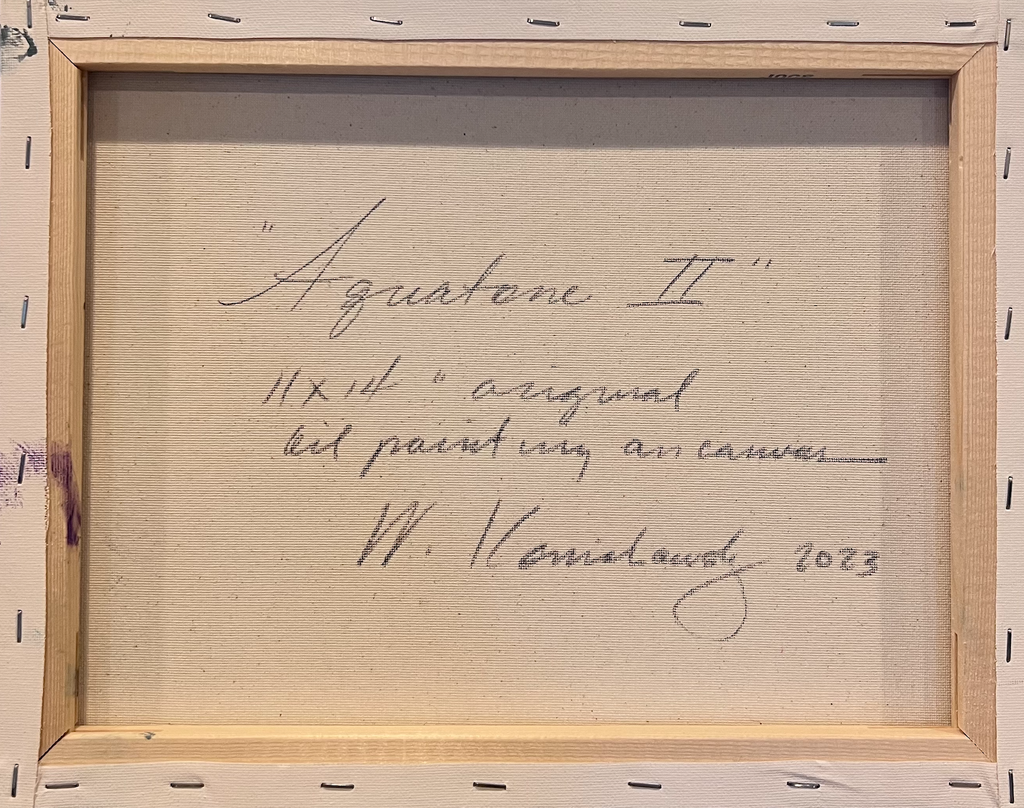 "Aquatone II"
11 x 14" original
oil painting on canvas
W. 2023